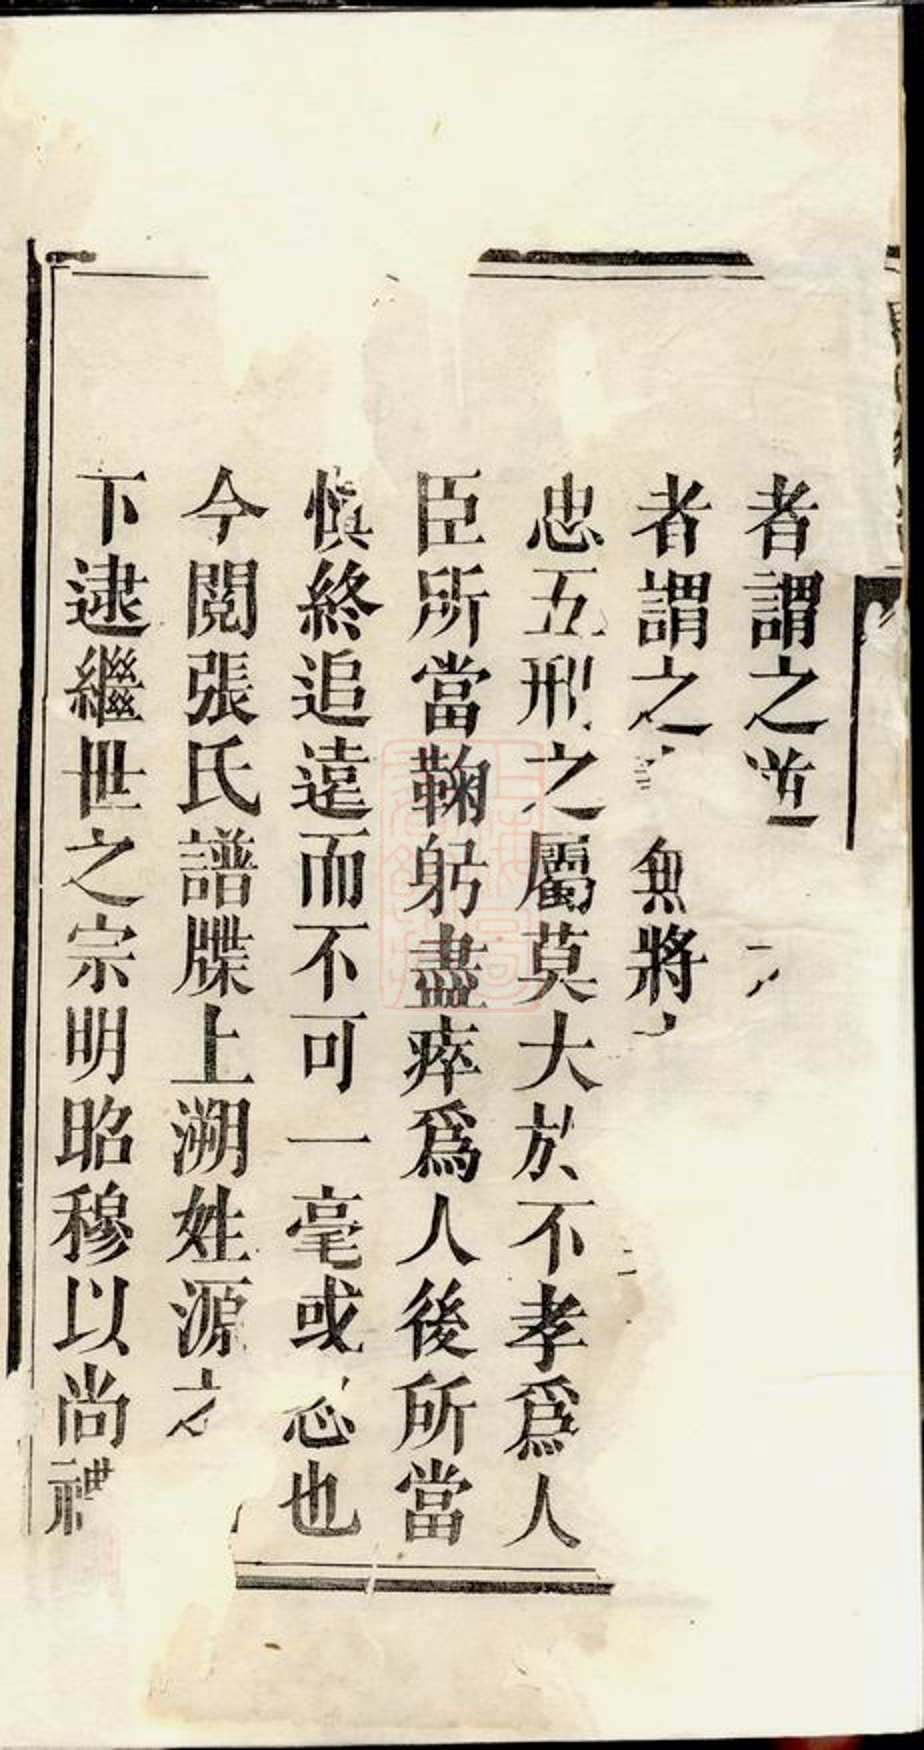 者謂之道
者謂之 無將
忠五刑之屬莫大於不孝爲人
臣所當鞠躬盡瘁爲人後所當
慎終追遠而不可一毫或忘也
今閱張氏譜牒上溯姓源之
下逮繼世之宗明昭穆以尚禮